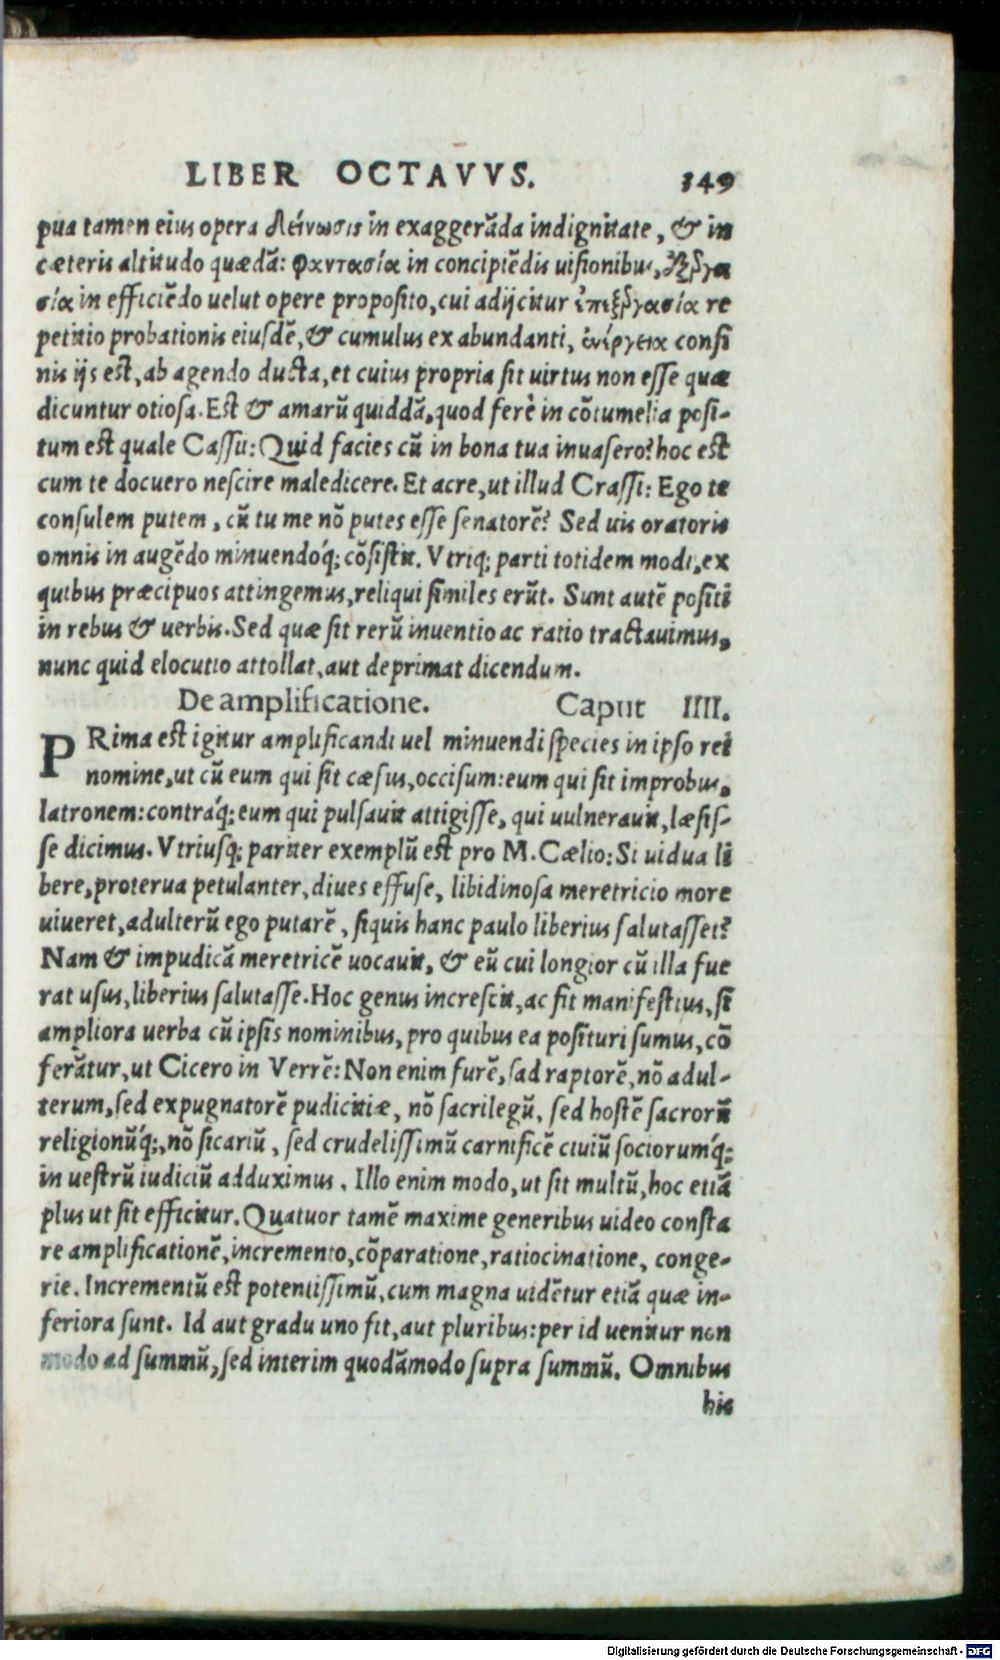 LIBER OCTAVVS. 149
pua tamen eius opera δείνωσις in exaggerãda indignitate, & in
cæteris altitudo quædã: φαντασία in concipiẽdis uisionibus, ἐξεργα
σία in efficiẽdo uelut opere proposito, cui adijcitur ἐπεξεργασία re
petitio probationis eiusdẽ, & cumulus ex abundanti, ἐνέργεια confi
nis ijs est, ab agendo ducta, et cuius propria sit uirtus non esse quæ
dicuntur otiosa. Est & amarũ quiddã, quod ferè in cõtumelia posi-
tum est quale Cassii: Quid facies cũ in bona tua inuasero? hoc est
cum te docuero nescire maledicere. Et acre, ut illud Crassi: Ego te
consulem putem, cũ tu me nõ putes esse senatorẽ? Sed uis oratoris
omnis in augẽdo minuendoq́; cõsistit. Vtriq; parti totidem modi, ex
quibus præcipuos attingemus, reliqui similes erũt. Sunt autẽ positi
in rebus & uerbis. Sed quæ sit rerũ inuentio ac ratio tractauimus,
nunc quid elocutio attollat, aut deprimat dicendum.
De amplificatione. Caput IIII.
PRima est igitur amplificandi uel minuendi species in ipso rei
nomine, ut cũ eum qui sit cæsus, occisum: eum qui sit improbus,
latronem: contráq; eum qui pulsauit attigisse, qui uulnerauit, læsis-
se dicimus. Vtriusq; pariter exemplũ est pro M. Cælio: Si uidua li
bere, proterua petulanter, diues effuse, libidinosa meretricio more
uiueret, adulterũ ego putarẽ, siquis hanc paulo liberius salutasset?
Nam & impudicã meretricẽ uocauit, & eũ cui longior cũ illa fue
rat usus, liberius salutasse. Hoc genus increscit, ac fit manifestius, si
ampliora uerba cũ ipsis nominibus, pro quibus ea posituri sumus, cõ
ferãtur, ut Cicero in Verrẽ: Non enim furẽ, sad raptorẽ, nõ adul-
terum, sed expugnatorẽ pudicitiæ, nõ sacrilegũ, sed hostẽ sacrorũ
religionũq́;, nõ sicariũ, sed crudelissimũ carnificẽ ciuiũ sociorumq́;
in uestrũ iudiciũ adduximus. Illo enim modo, ut sit multũ, hoc etiã
plus ut sit efficitur. Quatuor tamẽ maxime generibus uideo consta
re amplificationẽ, incremento, cõparatione, ratiocinatione, conge-
rie. Incrementũ est potentissimũ, cum magna uidẽtur etiã quæ in-
feriora sunt. Id aut gradu uno fit, aut pluribus: per id uenitur non
modo ad summũ, sed interim quodãmodo supra summũ. Omnibus
his
Digitalisierung gefördert durch die Deutsche Forschungsgemeinschaft - DFG